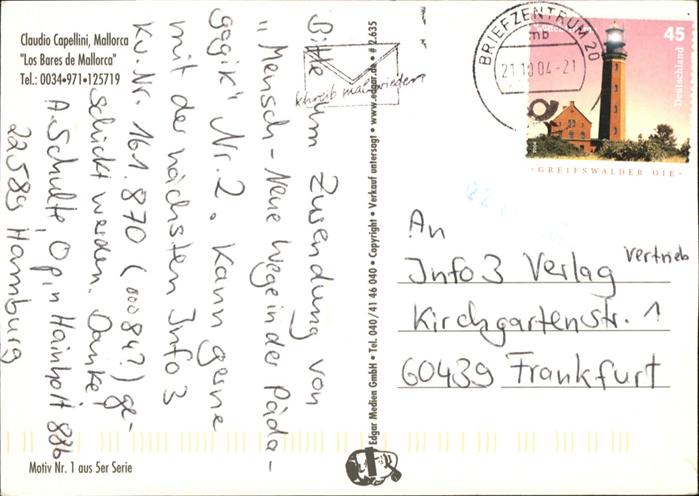 Claudio Capellini, Mallorca
"Los Bares de Mallorca"
Tel.: 0034•971•125719
Bitte um Zusendung von
"Mensch - Neue Wege in der Päda-
gogik" Nr. 2. Kann gerne
mit der nächsten Info 3
Kd.Nr. 161.870 (00084?) ge-
schickt werden. Danke,
A. Schulte, Op'n Hainholt 88b
22589 Hamburg
Motiv Nr. 1 aus 5er Serie
schreib mal wieder
Edgar Medien GmbH • Tel. 040/41 46 040 • Copyright • Verkauf untersagt • www.edgar.de • # 2.635
BRIEFZENTRUM 20
mb
21.10.04-21
45
Deutschland
2004
·GREIFSWALDER OIE·
An
Info 3 Verlag Vertrieb
Kirchgartenstr. 1
60439 Frankfurt